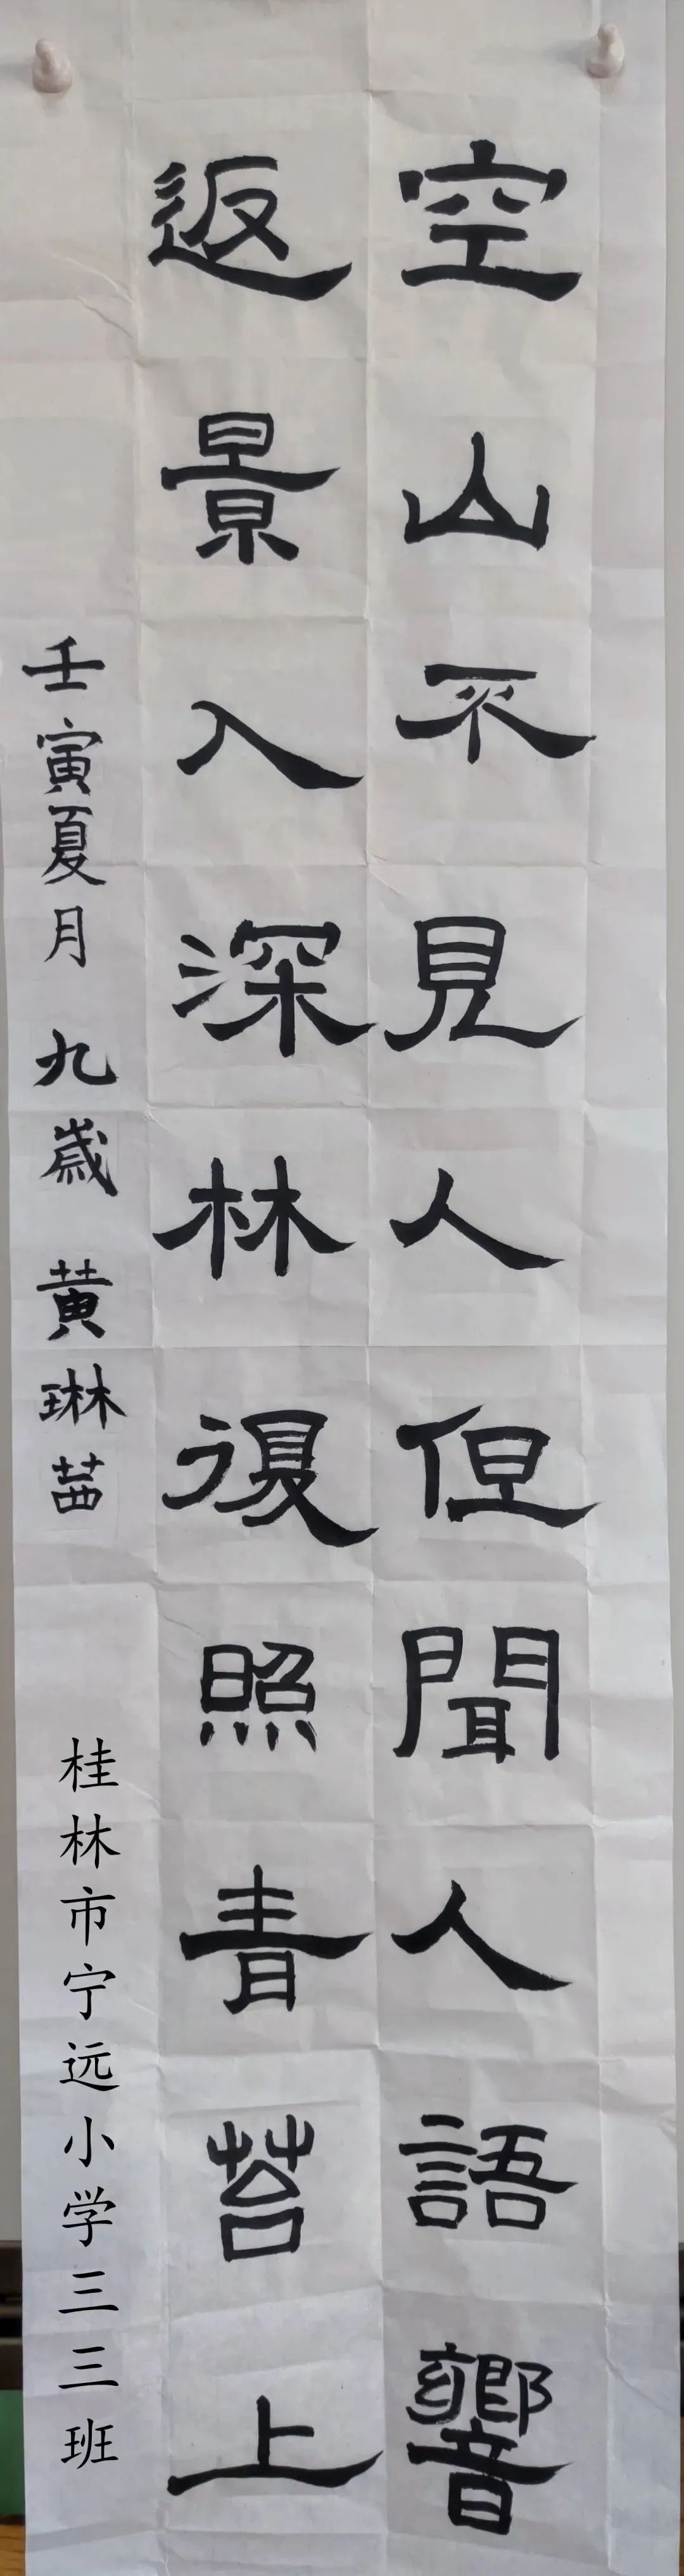 空山不見人但聞人語響
返景入深林復照青苔上
壬寅夏月 九歲 黄琳茜
桂林市宁远小学三三班